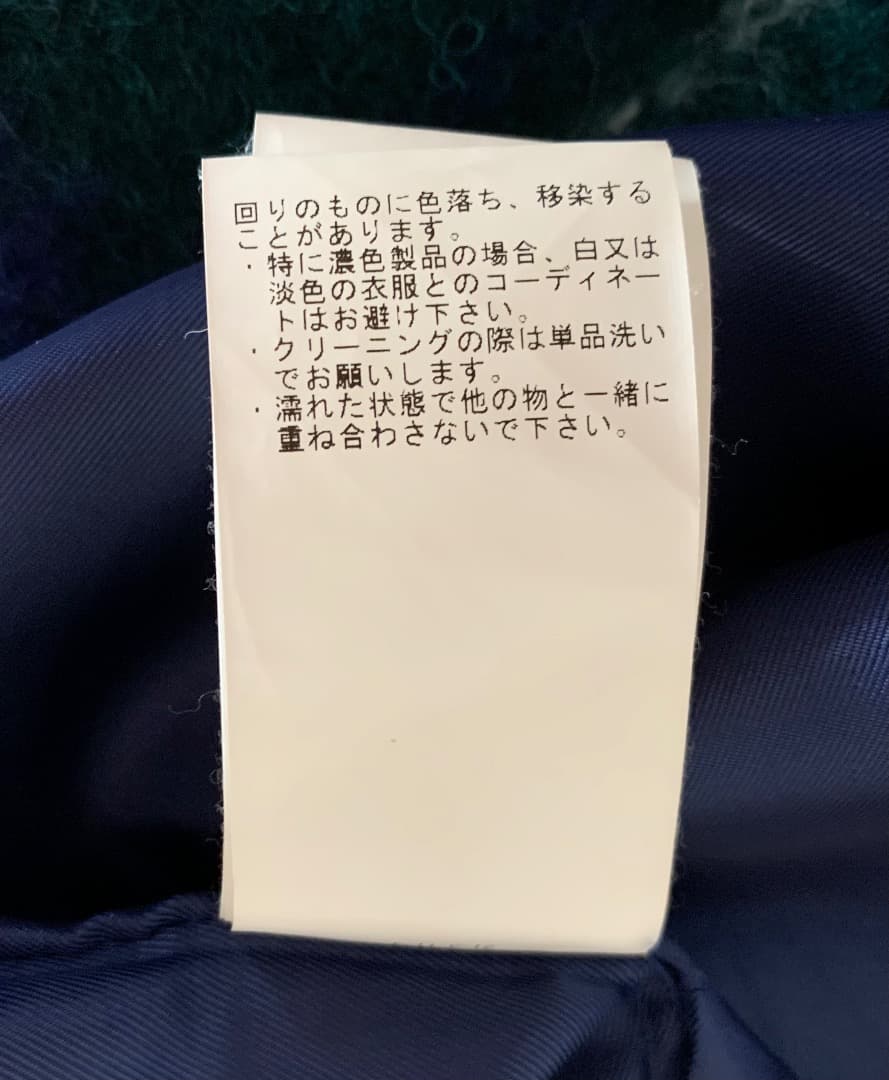 回りのものに色落ち、移染する
ことがあります。
・特に濃色製品の場合、白又は
淡色の衣服とのコーディネー
トはお避け下さい。
・クリーニングの際は単品洗い
でお願いします。
・濡れた状態で他の物と一緒に
重ね合わさないで下さい。